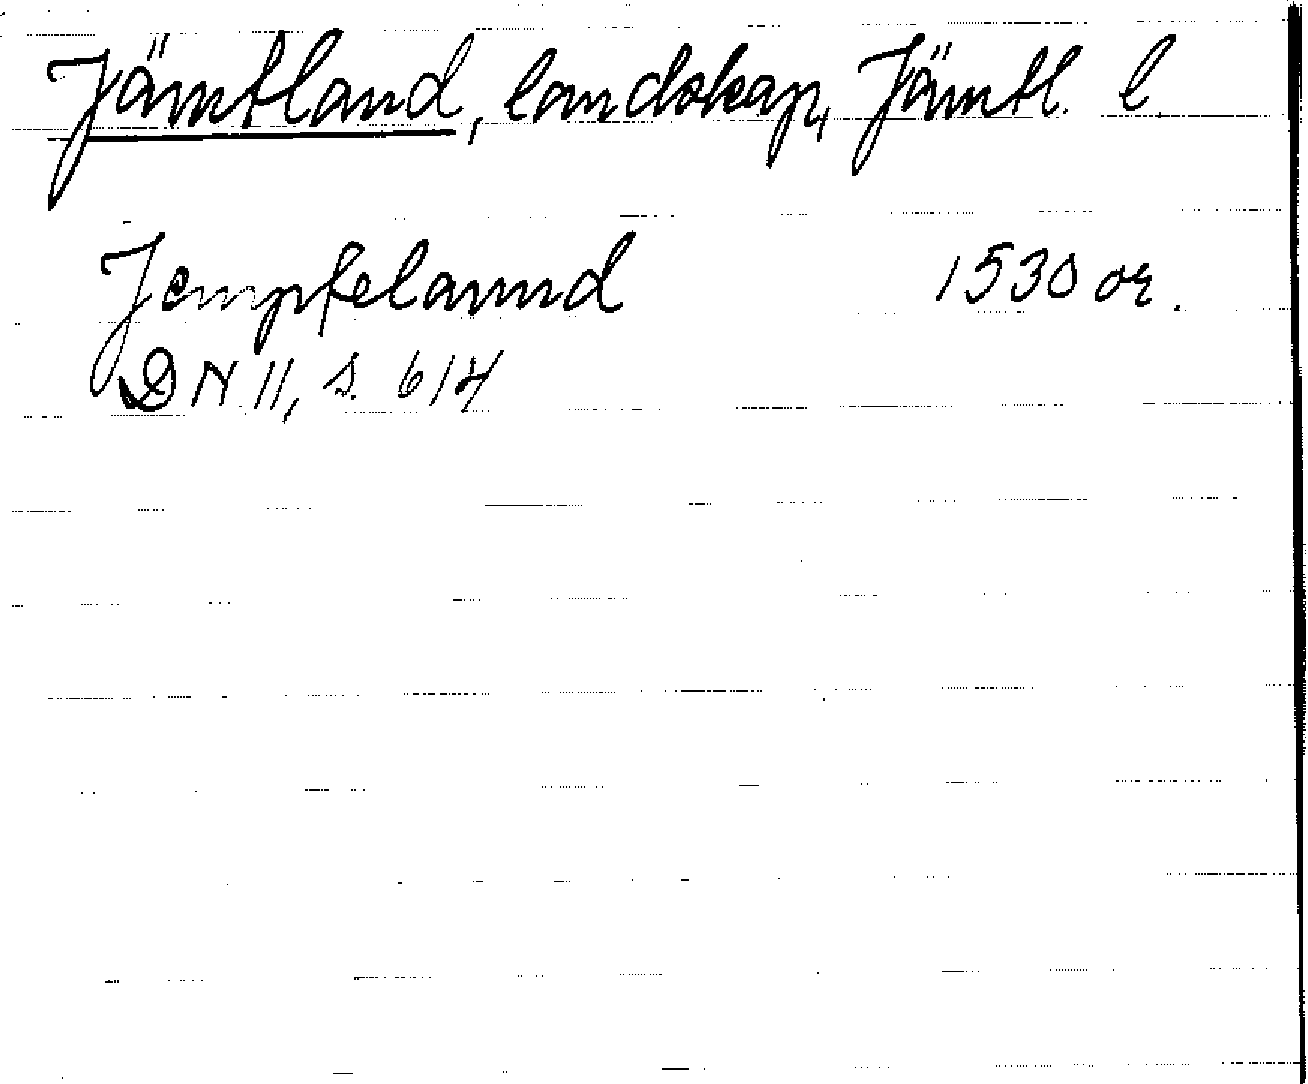 Jämtland, landskap, Jämtl. l
Jempfelannd 1530 or.
DN 11, s. 614